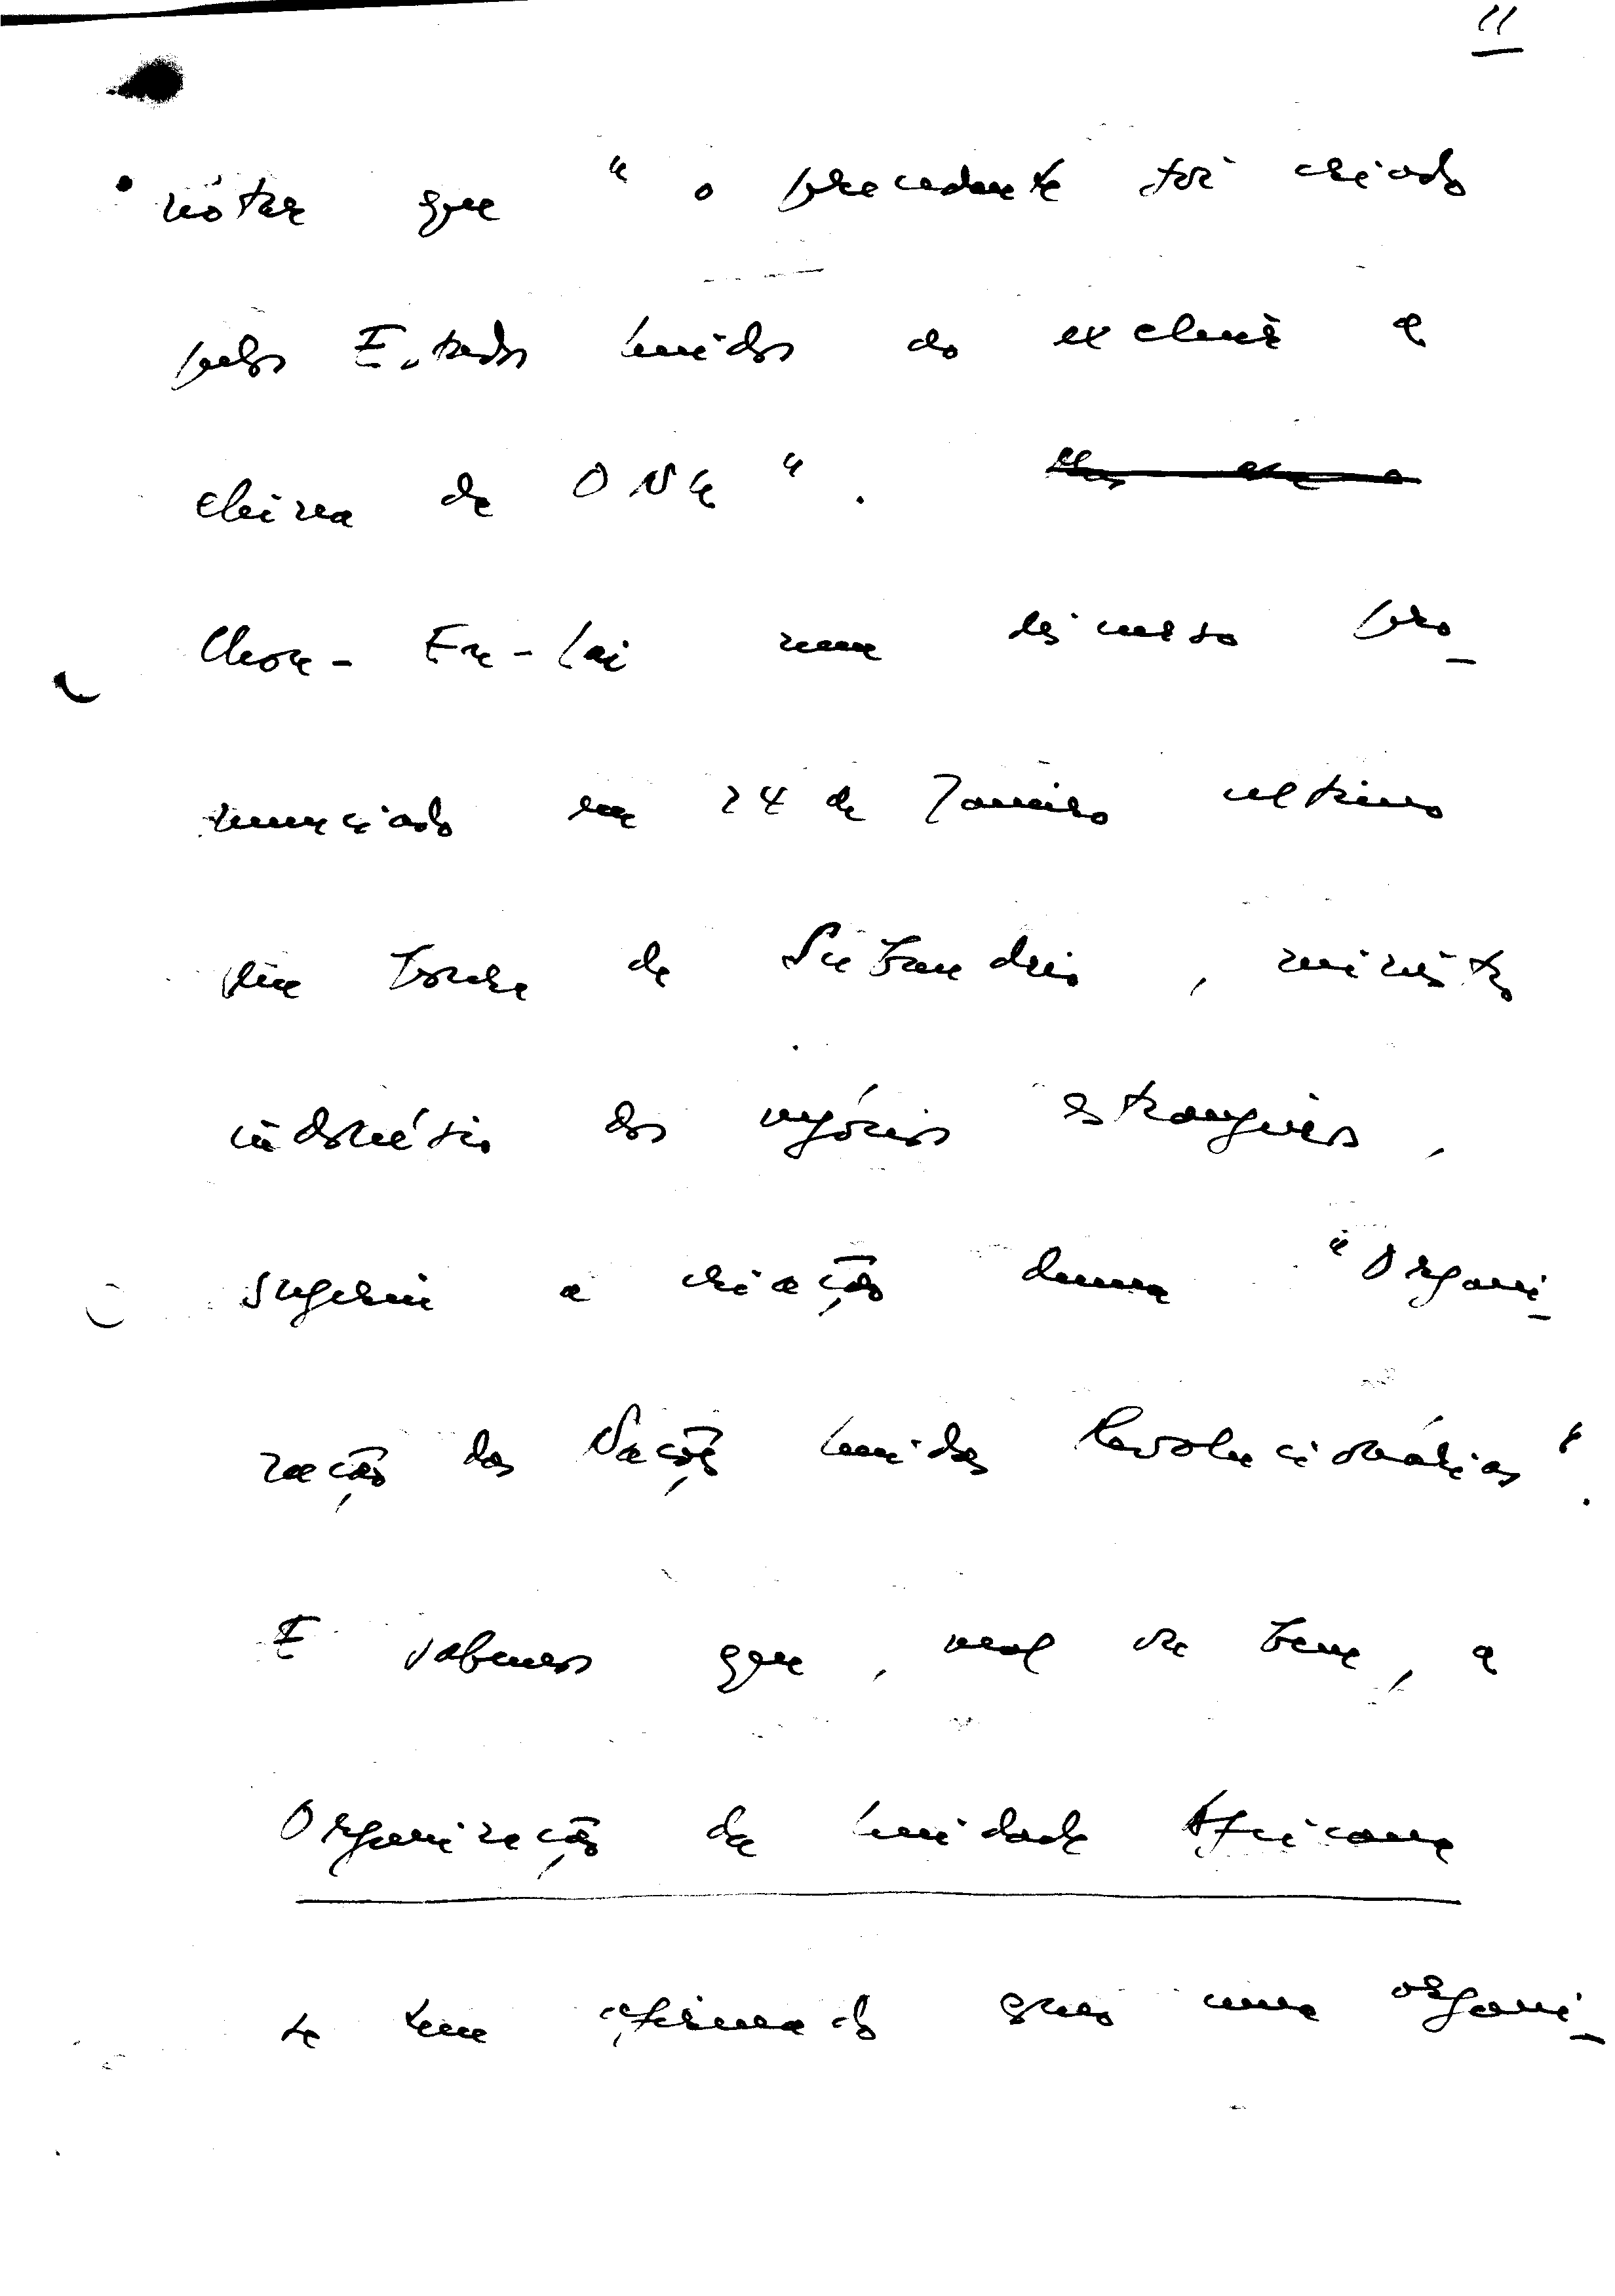 11
notar que " o precedente foi criado
pelos Estados Unidos ao excluir a
China da ONU ".
Chou-En-Lai num discurso pro-
nunciado em 24 de Janeiro ultimo
em honra de Subandrio, ministro
indonésio dos negócios estrangeiros,
sugeriu a criação duma " Organi-
zação das Nações Unidas Revolucionárias ".
E sabemos que, mal ou bem, a
Organização da Unidade Africana
se tem afirmado como uma organi-